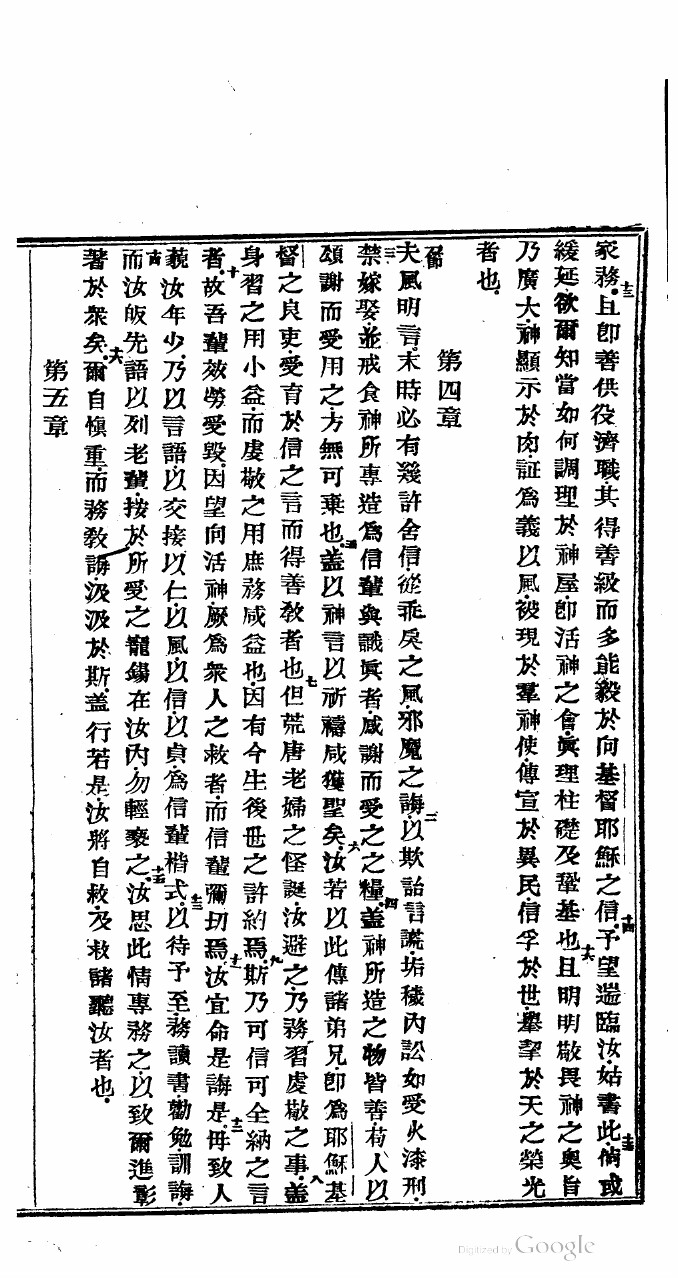 家務.且卽善供役濟職.其得善級而多能毅於向基督耶穌之信.予望遄臨汝.姑書此.倘或
緩延.欲爾知當如何調理於神屋.卽活神之會.眞理柱礎及鞏基也.且明明敬畏神之奧旨
乃廣大.神顯示於肉.証爲義以風.被現於羣神使.傳宣於異民.信孚於世.舉挈於天之榮光
者也.
第四章
夫風明言.末時必有幾許舍信.從乖戾之風.邪魔之誨.以欺詒言謊.垢穢內訟如受火漆刑.
禁嫁娶.並戒食神所專造爲信輩與識眞者.咸謝而受之之糧.蓋神所造之物皆善.苟人以
頌謝而受用之方無可棄也.蓋以神言以祈禱咸獲聖矣.汝若以此傳諸弟兄卽爲耶穌基
督之良吏.受育於信之言而得善教者也.但荒唐老婦之怪誕.汝避之.乃務習虔敬之事.蓋
身習之用小益.而虔敬之用庶務咸益也.因有今生後世之許約焉.斯乃可信可全納之言
者.故吾輩效勞受毀.因望向活神.厥爲衆人之救者.而信輩彌切焉.汝宜命是誨是.毋致人
藐汝年少.乃以言語以交接以仁以風以信以貞.爲信輩楷式.以待予至.務讀書勸勉訓誨.
而汝皈先語以列老輩按於所受之寵錫在汝內.勿輕褻之.汝思此情專務之.以致爾進彰
著於衆矣.爾自愼重.而務教誨.汲汲於斯.蓋行若是.汝將自救.及救諸聽汝者也.
第五章
十三
十四
十五
十六
一節
二
三
四
五
六
七
八
九
十
十一
十二
十三
十四
十五
十六
Digitized by Google